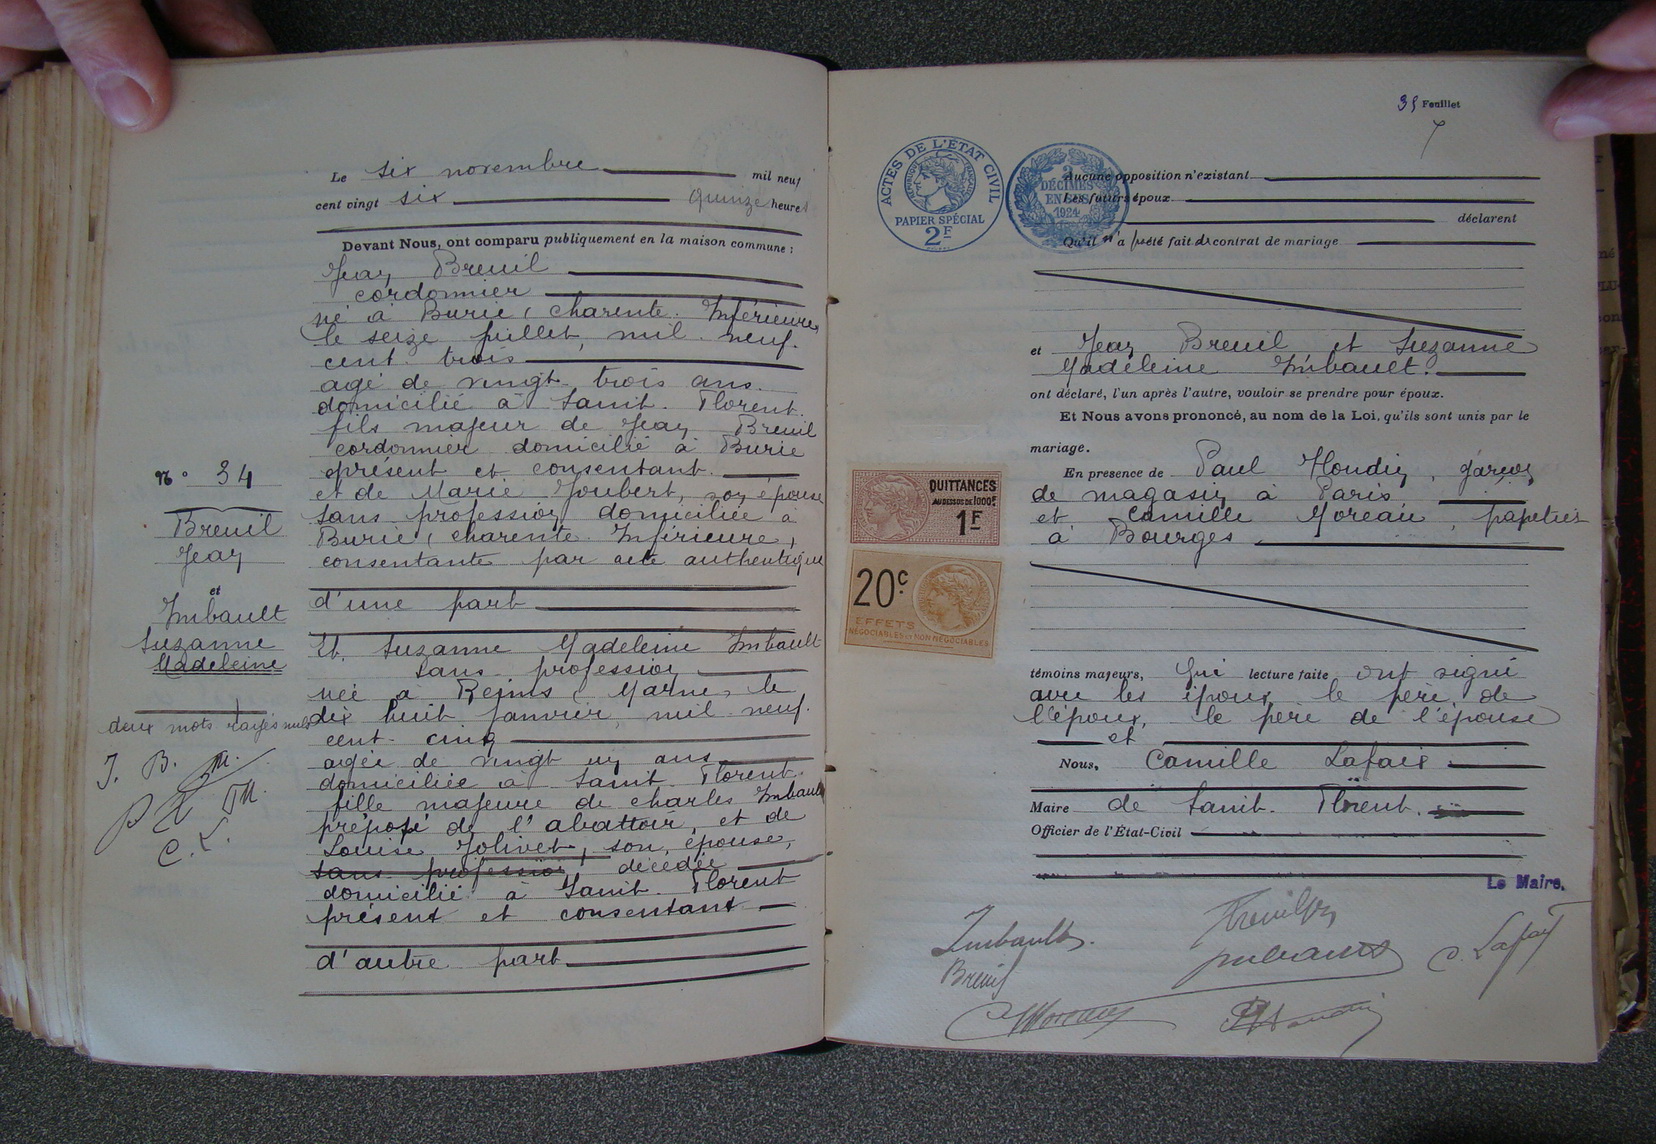 Le six novembre mil neuf
cent vingt six quinze heures
Devant Nous, ont comparu publiquement en la maison commune :
Jean Breuil
cordonnier
né à Burie (charente. Inférieure)
le seize juillet, mil. neuf.
cent. trois
agé de vingt. trois ans.
domicilié à Saint. Florent.
fils majeur de Jean Breuil
cordonnier domicilié à Burie
présent et consentant.
et de Marie Joubert, son épouse
sans profession domiciliée à
Burie (charente. Inférieure,
consentante par acte authentique
d'une part
Et. Suzanne Madeleine Imbault
sans profession
née à Reims (Marne) le
dix huit janvier, mil. neuf.
cent. cinq
agée de vingt un ans
domiciliée à Saint. Florent.
fille majeure de charles Imbault
préposé de l'abattoir, et de
Louise Jolivet, son épouse,
sans profession décédée
domicilié à Saint. Florent
présent et consentant
d'autre part
N° 34
Breuil
Jean
et
Imbault
Suzanne
Madeleine
deux mots rayés nuls
J. B. M.
C. L.
35 Feuillet
ACTES DE L'ETAT CIVIL
RÉPUBLIQUE FRANÇAISE
PAPIER SPÉCIAL
2F
2
DÉCIMES
EN SUS
1924
Aucune opposition n'existant
Les futurs époux
déclarent
Qu'il n'a pas été fait de contrat de mariage
et Jean Breuil et Suzanne
Madeleine Imbault.
ont déclaré, l'un après l'autre, vouloir se prendre pour époux.
Et Nous avons prononcé, au nom de la Loi, qu'ils sont unis par le
mariage.
En presence de Paul Houdin, garçon
de magasin à Paris
et Camille Moreau, papetier
à Bourges
QUITTANCES
AU DESSUS DE 1000F
1F
20c
EFFETS
NÉGOCIABLES ET NON NÉGOCIABLES
témoins majeurs, Qui lecture faite ont signé
avec les époux, le père de
l'époux, le père de l'épouse
et
Nous, Camille Lafaix
Maire de Saint. Florent.
Officier de l'État-Civil
Le Maire,
Imbault.
Breuil
C. Lafaix
C Moreau
P Houdin